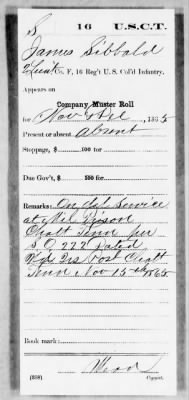 S 16 U.S.C.T.
James Sibbald
2 Lieut Co. F, 16 Reg't U. S. Col'd Infantry.
Appears on
Company Muster Roll
for Nov & Dec, 1865
Present or absent absent
Stoppage, $ 100 for
Due Gov't, $ 100 for
Remarks: On det service
at Mil Prison
Chatt Tenn per
S O 222 dated
Hd Qrs Post Chatt
Tenn Nov 15th 1865
Book mark:
(358)
Copyist.